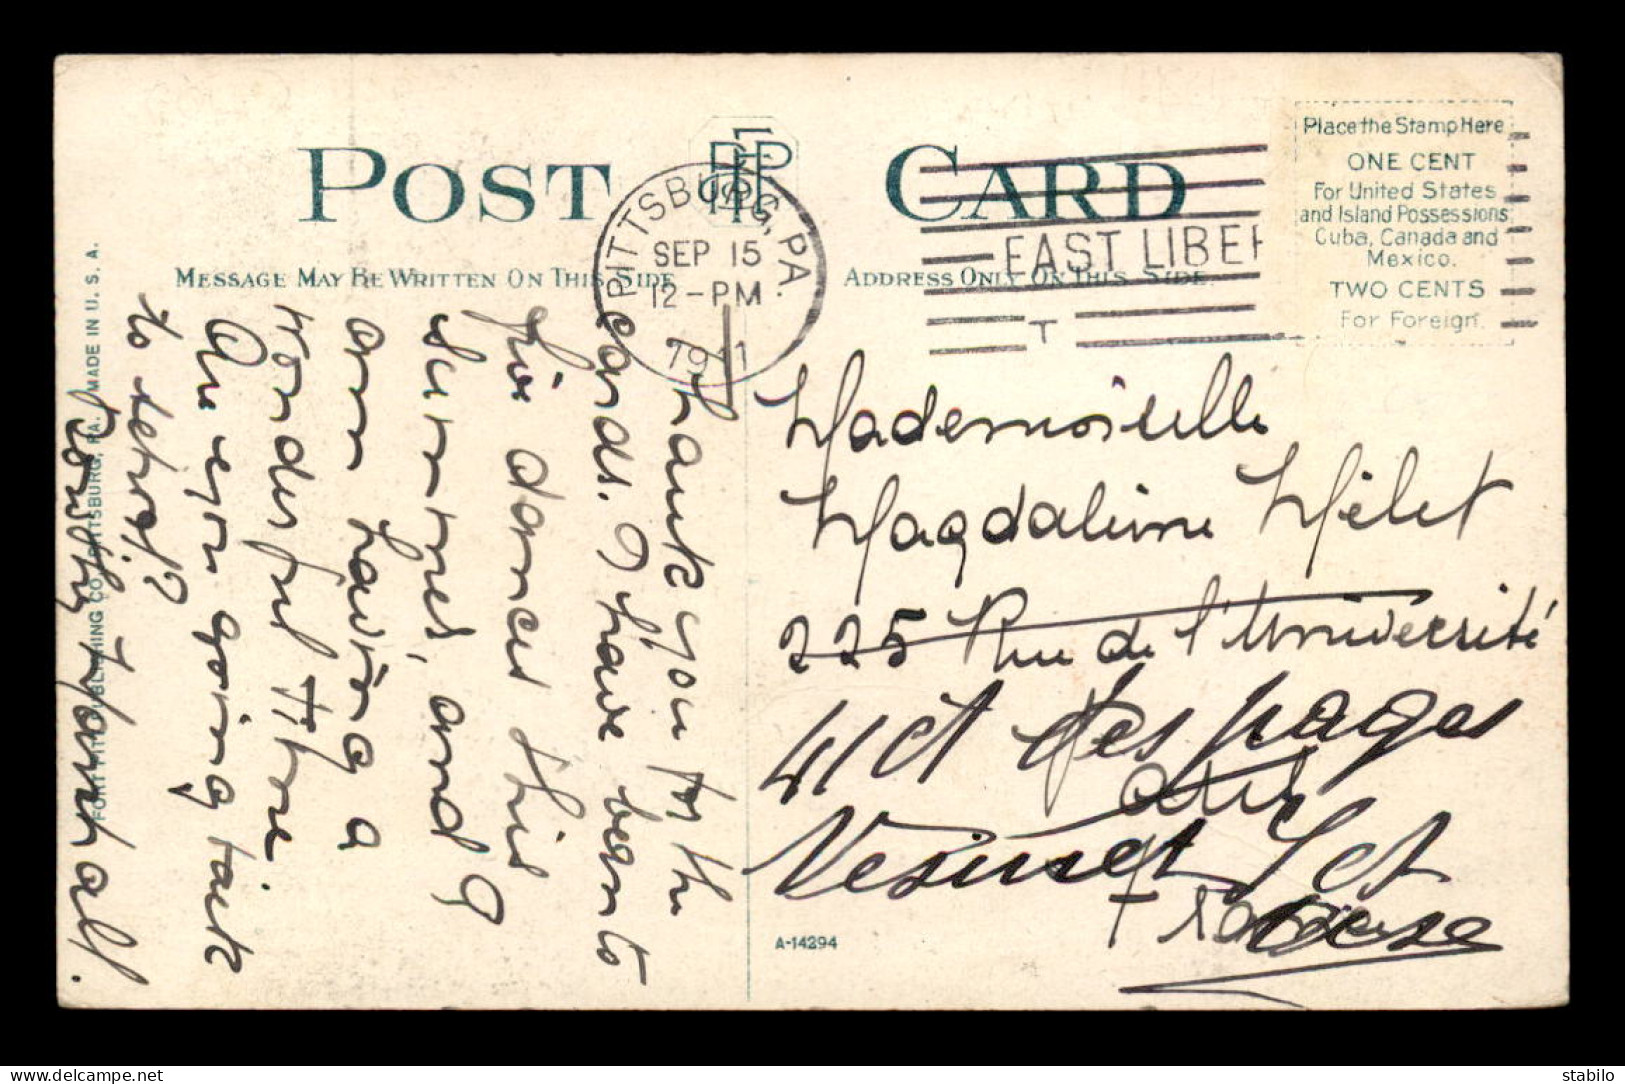 POST CARD
MESSAGE MAY BE WRITTEN ON THIS SIDE
ADDRESS ONLY ON THIS SIDE.
Place the Stamp Here
ONE CENT
For United States
and Island Possessions
Cuba, Canada and
Mexico.
TWO CENTS
For Foreign.
PITTSBURG, PA.
SEP 15
12-PM
1911
EAST LIBER
T
Thank you for the
cards. I have been to
five dances this
summer, and I
am having a
wonderful time
Are you going back
to school?
Dorothy
Mademoiselle
Magdaleine Mélet
225 Rue de l'Université
41 ct des pages
Vesinet Set
Oise
France
A-14294
FORT PITT PUBLISHING CO., PITTSBURG, PA. MADE IN U. S. A.
www.delcampe.net
stabilo